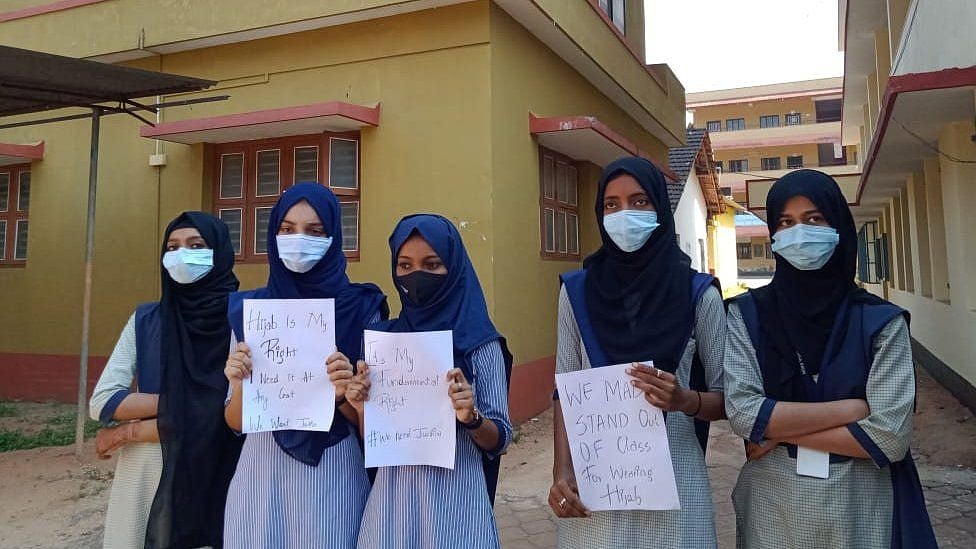 Hijab Is My
Right
I Need it At
Any Cost
We Want
Is My
Fundamental
Right
#We need Justice
WE MADE
STAND OUT
OF Class
For Wearing
Hijab